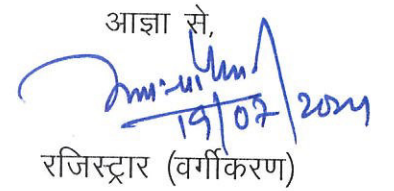 आज्ञा से,
19/07/2024
रजिस्ट्रार (वर्गीकरण)